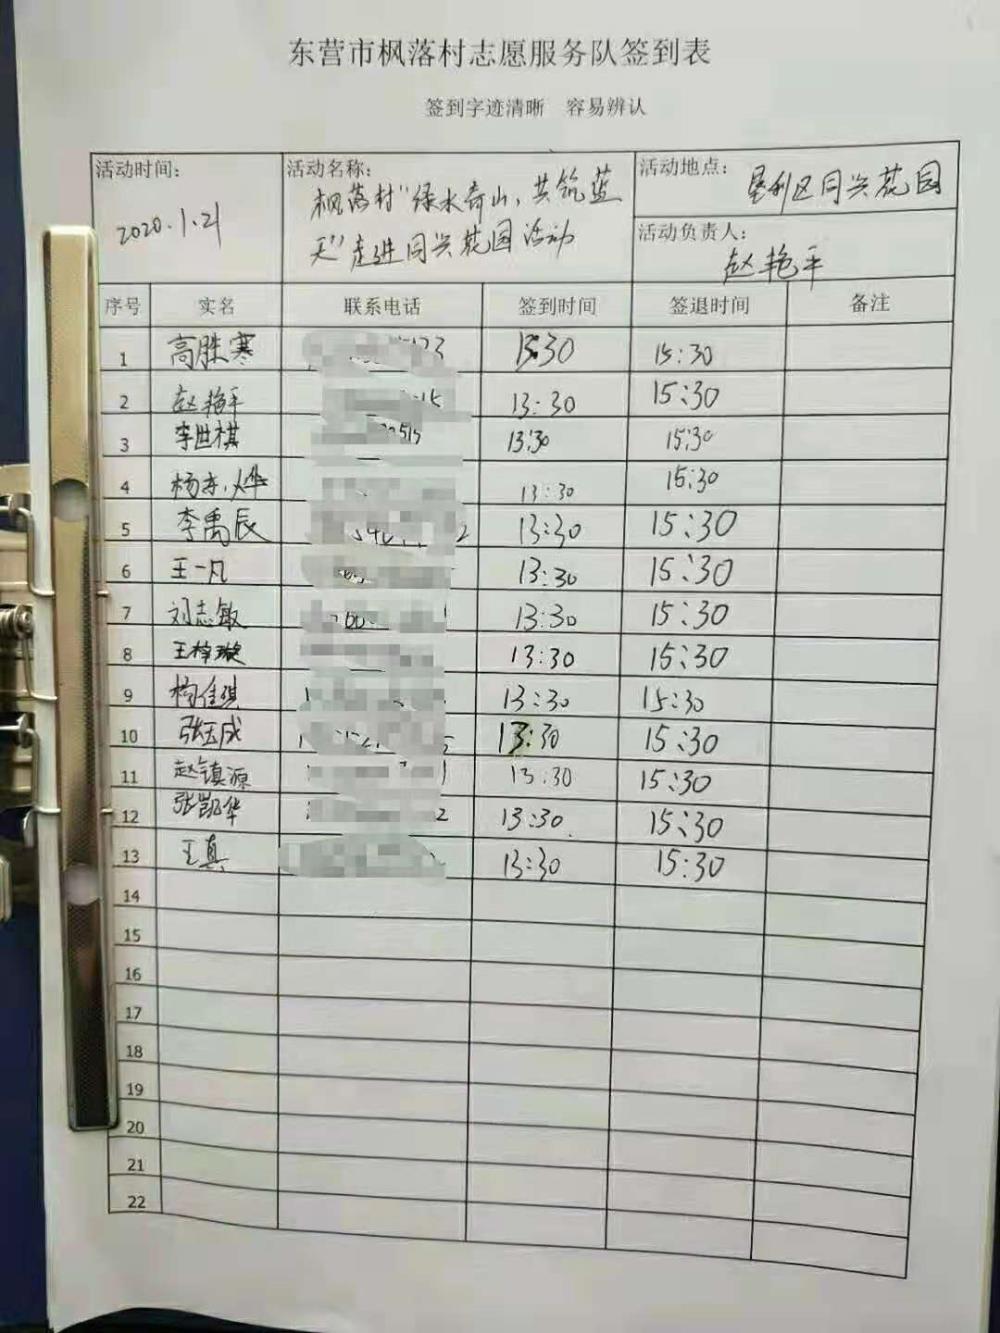 东营市枫落村志愿服务队签到表
签到字迹清晰 容易辨认
活动时间：
2020.1.21
活动名称：
枫落村"绿水奇山，共筑蓝
天"走进同兴花园活动
活动地点： 垦利区同兴花园
活动负责人：
赵艳平
序号 实名 联系电话 签到时间 签退时间 备注
1 高胜寒 15:30 15:30
2 赵艳平 13:30 15:30
3 李世棋 13:30 15:30
4 杨东烨 13:30 15:30
5 李禹辰 13:30 15:30
6 王一凡 13:30 15:30
7 刘志敏 13:30 15:30
8 王梓璇 13:30 15:30
9 杨佳琪 13:30 15:30
10 张玉成 13:30 15:30
11 赵镇源 13:30 15:30
12 张凯华 13:30 15:30
13 王真 13:30 15:30
14
15
16
17
18
19
20
21
22